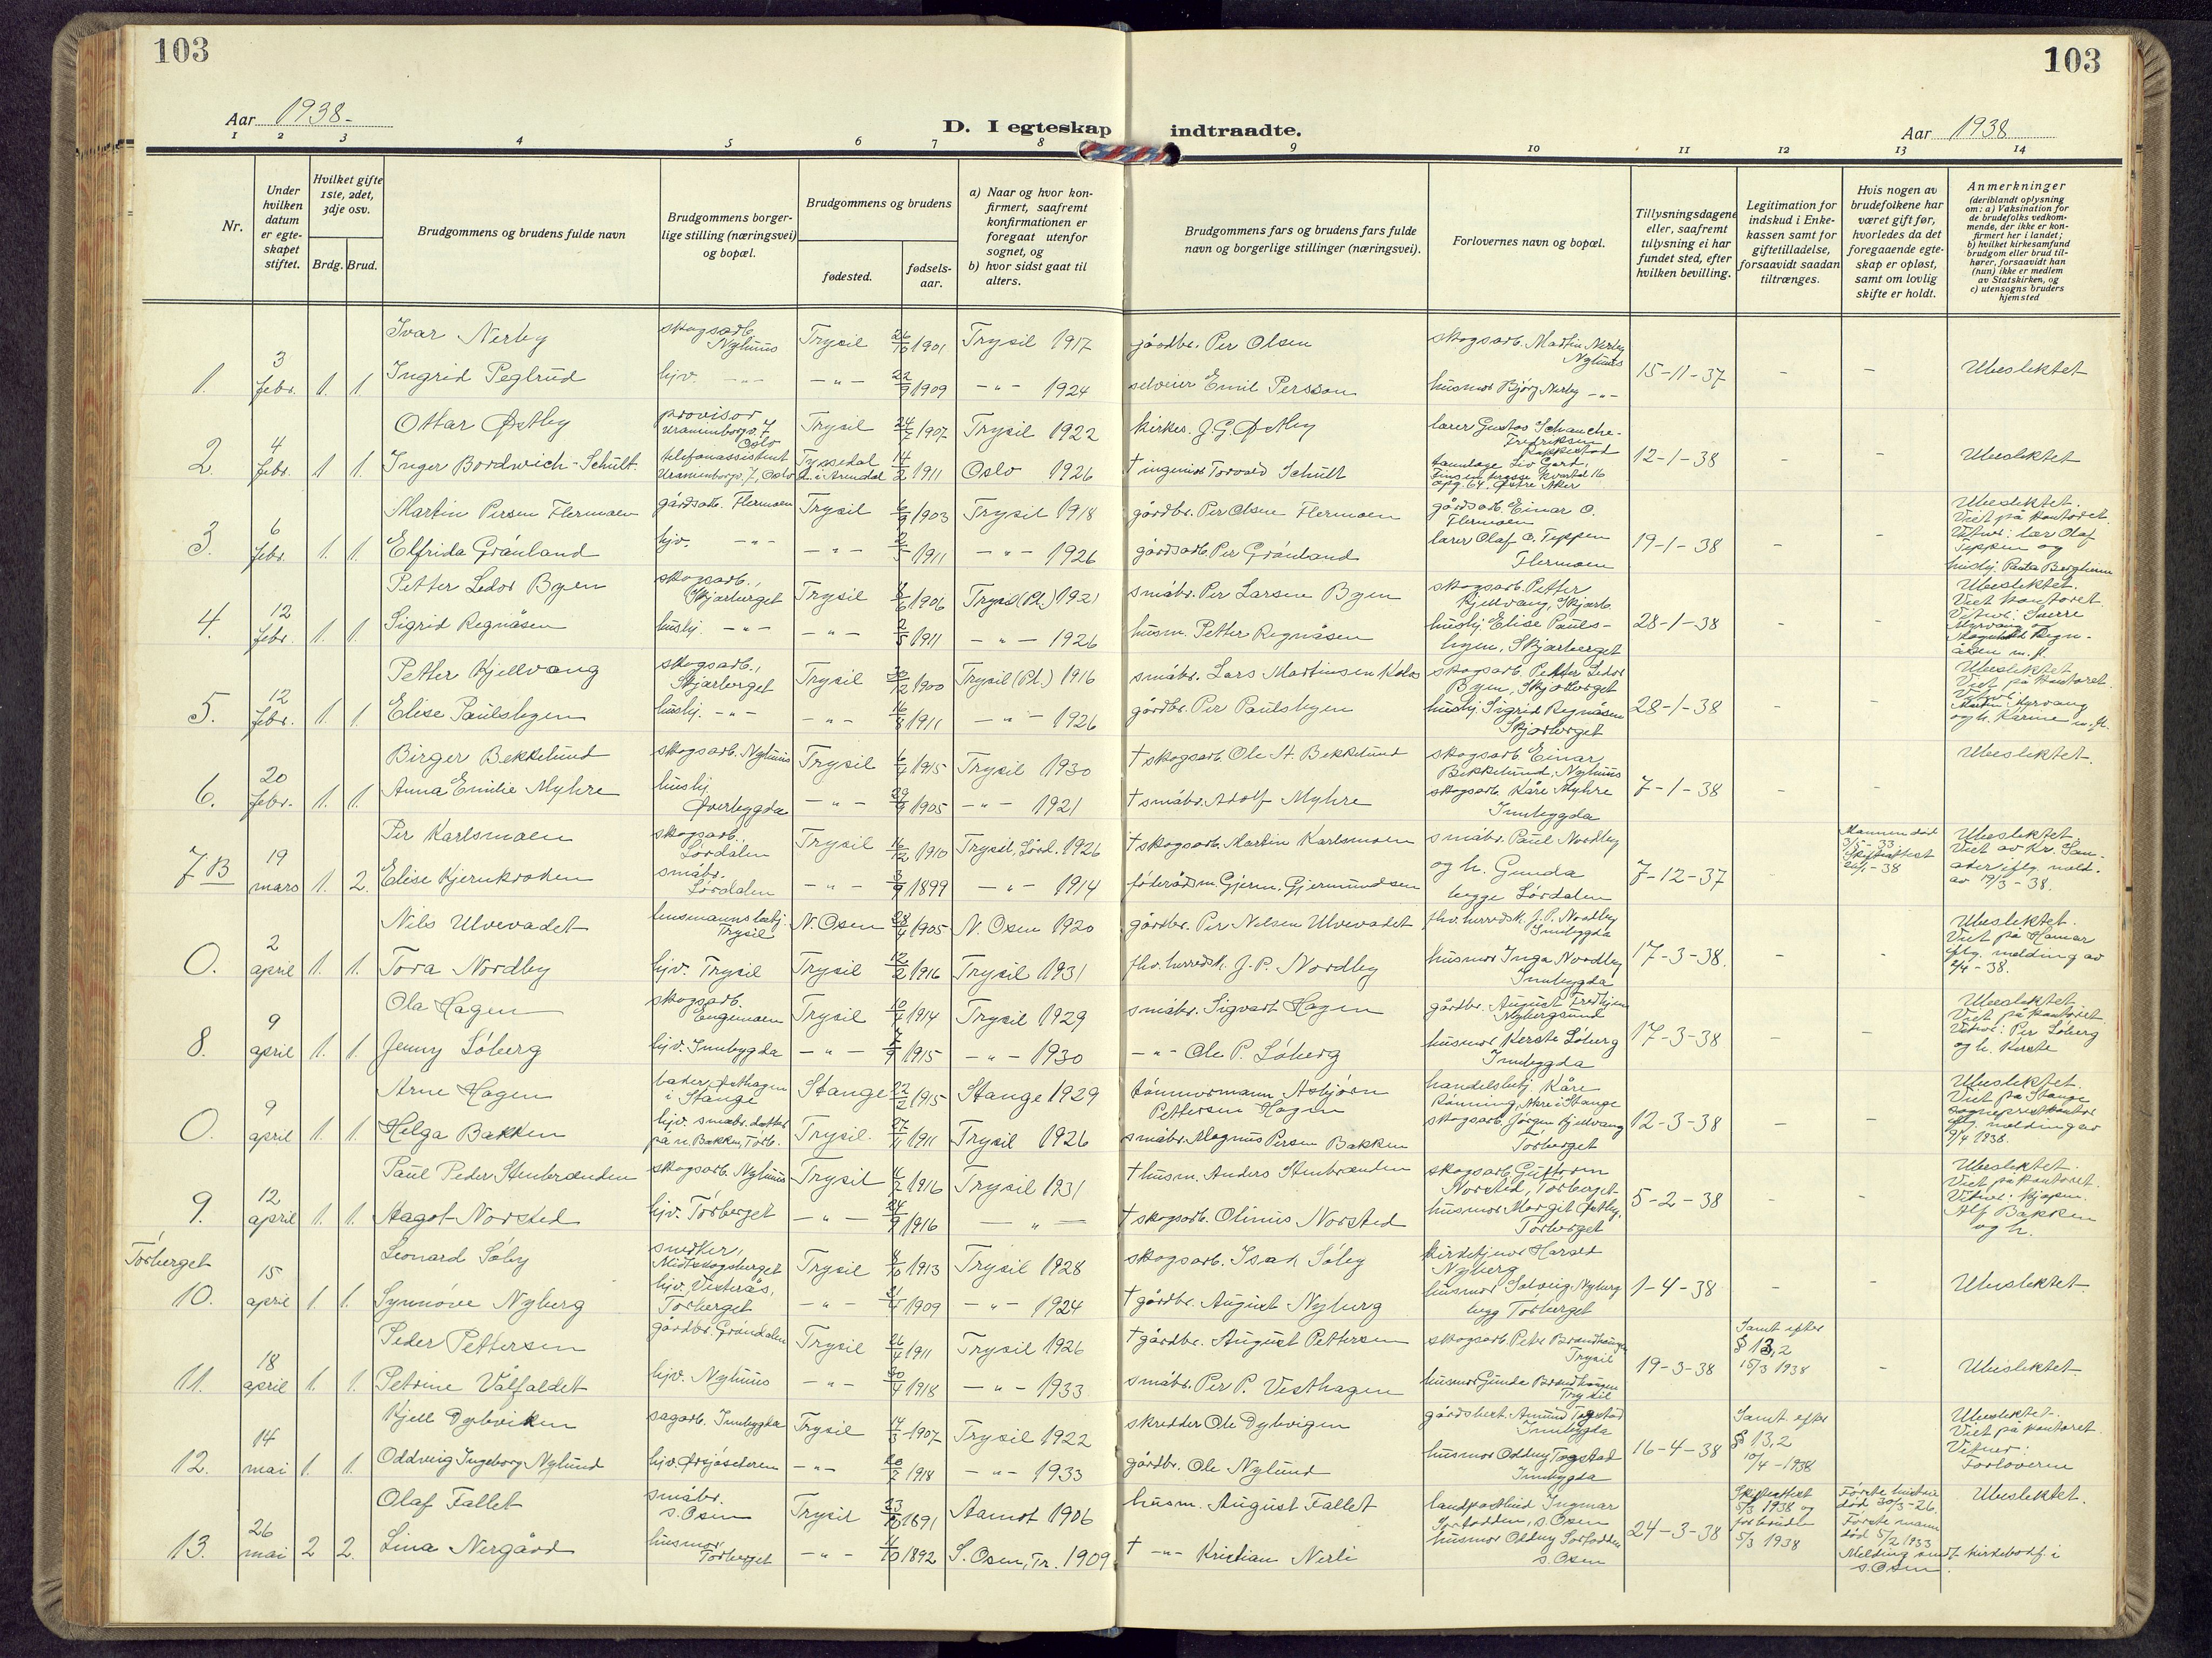 103
103
Aar 1938-
D. I egteskap indtraadte.
Aar 1938
1 2 3 4 5 6 7 8 9 10 11 12 13 14
Nr.
Under hvilken datum er egte-skapet stiftet.
Hvilket gifte 1ste, 2det, 3dje osv.
Brdg. Brud.
Brudgommens og brudens fulde navn
Brudgommens borger-lige stilling (næringsvei) og bopæl.
Brudgommens og brudens
fødested.
fødsels-aar.
a) Naar og hvor kon-firmert, saafremt konfirmationen er foregaat utenfor sognet, og
b) hvor sidst gaat til alters.
Brudgommens fars og brudens fars fulde navn og borgerlige stillinger (næringsvei).
Forlovernes navn og bopæl.
Tillysningsdagene eller, saafremt tilysning ei har fundet sted, efter hvilken bevilling.
Legitimation for indskud i Enke-kassen samt for giftetilladelse, forsaavidt saadan tiltrænges.
Hvis nogen av brudefolkene har været gift før, hvorledes da det foregaaende egte-skap er opløst, samt om lovlig skifte er holdt.
Anmerkninger (deriblandt oplysning om: a) Vaksination for de brudefolks vedkom-mende, der ikke er kon-firmert her i landet; b) hvilket kirkesamfund brudgom eller brud til-hører, forsaavidt han (hun) ikke er medlem av Statskirken, og c) utensogns bruders hjemsted
Ivar Nerby skogsarb. Nyhuus Trysil 26/10 1901 Trysil 1917 gårdbr. Per Olsen skogsarb. Martin Nerby Nyhuus
1. 3 febr. 1. 1. Ingrid Peglrud hjv. -"- -"- 22/9 1909 -"- 1924 selveier Emil Persson husmor Bjørg Nerby -"- 15-11-37 - - Ubeslektet
Ottar Østby provisor Uranienborgv. 7 Oslo Trysil 24/7 1907 Trysil 1922 kirkes. J.G. Østby lærer Gustav Schanche-Fredriksen
2. 4 febr. 1 1. Inger Bordwich-Schult. telefonassistent Uranienborgv. 7, Oslo Tyssedal 14/2 1911 Oslo 1926 † ingeniør Torvald Schult 12-1-38 - - Ubeslektet
Martin Persen Flermoen gårdsarb. Flermoen Trysil 6/9 1903 Trysil 1918 gårdbr. Per Olsen Flermoen gårdsarb. Einar O. Flermoen
3. 6 febr. 1. 1. Elfrida Grønland hjv. -"- -"- 2/5 1911 -"- 1926 gårdsarb. Per Grønland lærer Olaf O. Teppen Flermoen 19-1-38 - - Ubeslektet. Viet på kontoret. Vitner: lær. Olaf Teppen og hushj. Paula Bergheim
Petter Ledor Byen skogsarb., Skjærberget Trysil 8/6 1906 Trysil (Pl.) 1921 småbr. Per Larsen Byen skogsarb. Petter Kjellvang, Skjærb.
4. 12 febr. 1. 1. Sigrid Regnåsen hushj. -"- -"- 2/5 1911 -"- 1926 husm. Petter Regnåsen hushj. Elise Pauls-hyen, Skjærberget 28-1-38 - - Ubeslektet. Viet kontoret. Vitner: Sverre Myrvang og Magnhild Regn-åsen m. fl.
Petter Kjellvang skogsarb., Skjærberget Trysil 30/12 1900 Trysil (Pl.) 1916 småbr. Lars Martinsen skogsarb. Petter Ledor Byen, Skjærberget
5. 12 febr. 1. 1. Elise Paulshyen hushj. -"- -"- 16/8 1911 -"- 1926 gårdbr. Per Paulshyen hushj. Sigrid Regnåsen Skjærberget 28-1-38 - - Ubeslektet. Viet på kontoret. Vitner: Martin Myrvang og h. Karine m. fl.
Birger Bekkelund skogsarb. Nyhuus Trysil 6/4 1915 Trysil 1930 † skogsarb. Ole H. Bekkelund skogsarb. Einar Bekkelund, Nyhuus
6. 20 febr. 1. 1. Anna Emilie Myhre hushj. Øverbygda -"- 29/9 1905 -"- 1921 † småbr. Adolf Myhre skogsarb. Kåre Myhre Innbygda 7-1-38 - - Ubeslektet.
Per Karlsmoen skogsarb. Lørdalen Trysil 16/12 1910 Trysil, Lørd. 1926 † skogsarb. Martin Karlsmoen småbr. Paul Nordby
7B 19 mars 1. 2. Elise Kjernkroken småbr. Lørdalen -"- 3/9 1899 -"- 1914 føderådsm. Gjerm. Gjermundsen og h. Gunda begge Lørdalen 7-12-37 Mannen død 3/5-33. Skifteattest 24/1-38 Ubeslektet. Viet av Kr. San-
Nils Ulvevadet lensmannsbetj. Trysil N. Osen 28/4 1905 N. Osen 1920 gårdbr. Per Nilsen Ulvevadet fhv. herredsk. J.P. Nordby Innbygda
0. 2 april 1. 1. Tora Nordby hjv. Trysil Trysil 12/2 1916 Trysil 1931 fhv. herredsk. J.P. Nordby husmor Inga Nordby Innbygda 17-3-38. - - Ubeslektet. Viet på Hamar iflg. melding av 2/4-38.
Ola Hagen skogsarb. Engemoen Trysil 10/4 1914 Trysil 1929 småbr. Sigvart Hagen gårdbr. August Fredhjem Nybergsund
8. 9 april 1. 1. Jenny Løberg hjv. Innbygda -"- 7/9 1915 -"- 1930 -"- Ole P. Løberg husmor Kerste Løberg Innbygda 17-3-38 - - Ubeslektet. Viet på kontoret Vitner: Per Løberg og h. Kerste
Arne Hagen bader, Østhagen i Stange Stange 22/2 1915 Stange 1929 tømmermann Asbjørn Pettersen Hagen handelsbetj. Kåre Rønning, Akre i Stange
0. 9 april 1. 1. Helga Bakken hjv. småbr. datter på n. Bakken, Törb. Trysil. 27/11 1911 Trysil 1926 småbr. Magnus Persen Bakken skogsarb. Jørgen Kjellvang Törberget 12-3-38 - - Ubeslektet. Viet på Stange sogneprestkontor iflg. melding av 9/4 1938.
Paul Peder Stenbrænden skogsarb. Nyhuus Trysil 4/2 1916 Trysil 1931 † husm. Anders Stenbrænden skogsarb. Guttorm Norsted, Törberget
9. 12 april 1. 1. Hagot Norsted hjv. Törberget -"- 24/9 1916 -"- † skogsarb. Olinus Norsted husmor Margit Östby, Törberget 5-2-38 - - Ubeslektet. Viet på kontoret. Vitner: kjøpm. Alf Bakken og h.
Törberget Leonard Søby snekker, Midtskogsberget Trysil 8/10 1913 Trysil 1928 skogsarb. Isak Søby kirketjener Harald Nyberg
10. 15 april 1. 1. Synnøve Nyberg hjv. Vesterås, Törberget -"- 21/4 1909 -"- 1924 † gårdbr. August Nyberg husmor Solveig Nyberg begg Törberget 1-4-38 - - Ubeslektet.
Peder Pettersen gårdbr. Grøndalen Trysil 26/4 1911 Trysil 1926 † gårdbr. August Pettersen skogsarb. Peter Brandhaugen Trysil
11. 18 april 1. 1. Petrine Vålfaldet hjv. Nyhuus -"- 30/4 1918 -"- 1933. småbr. Per P. Vesthagen husmor Gunda Brandhaugen Trysil 19-3-38 Samt. efter § 13,2 15/3 1938 - Ubeslektet.
Kjell Dybviken sagarb. Innbygda Trysil 14/3 1907 Trysil 1922 skredder Ole Dybvigen gårdsbest. Amund Tegstad Innbygda
12. 14 mai 1. 1. Oddveig Ingeborg Nylund hjv. Ørsjøseteren -"- 20/2 1918 -"- 1933 gårdbr. Ole Nylund husmor Oddny Tegstad Innbygda 16-4-38 Samt. efter § 13,2 10/4-1938 Ubeslektet. Viet på kontoret. Vitner: Forloverne
Olaf Fallet småbr. S. Osen Trysil 23/10 1891 Aamot 1906 husm. August Fallet landpostbud Ingmar Sorfodden, S. Osen
13. 26 mai 2 2. Lina Nergård husmor Törberget -"- 4/10 1892 S. Osen, Tr. 1909 † -"- Kristian Nerli husmor Oddny Sorfodden S. Osen 24-3-38 Skifteattest 5/3 1938 og 5/3 1938 Første hustru død 30/3-26. Første mann død 5/2 1933 Melding sendt kirkebokf. i S. Osen. Ubeslektet.